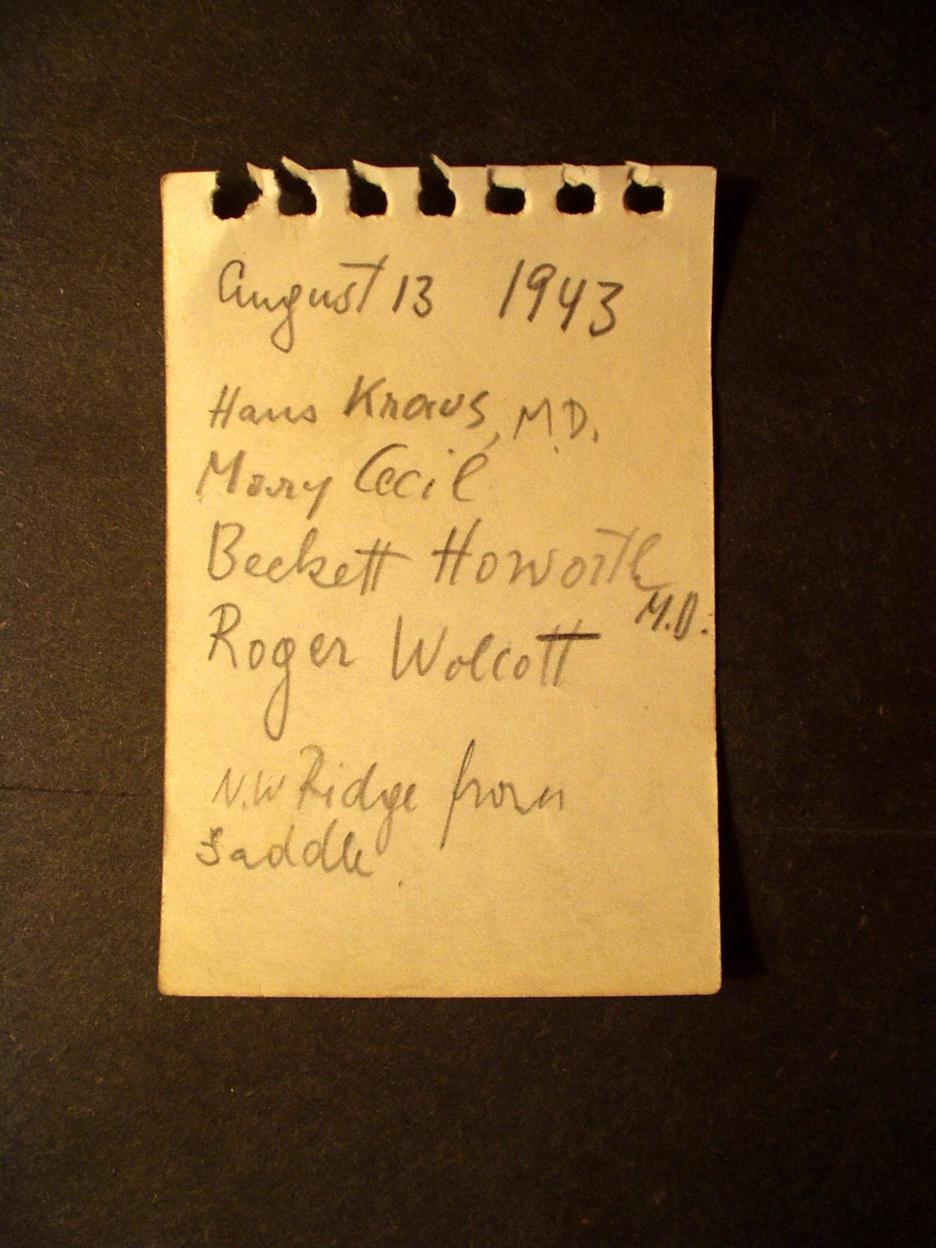 August 13 1943
Hans Kraus, M.D.
Mary Cecil
Beckett Howorth
M.D.
Roger Wolcott
N.W Ridge from
Saddle.